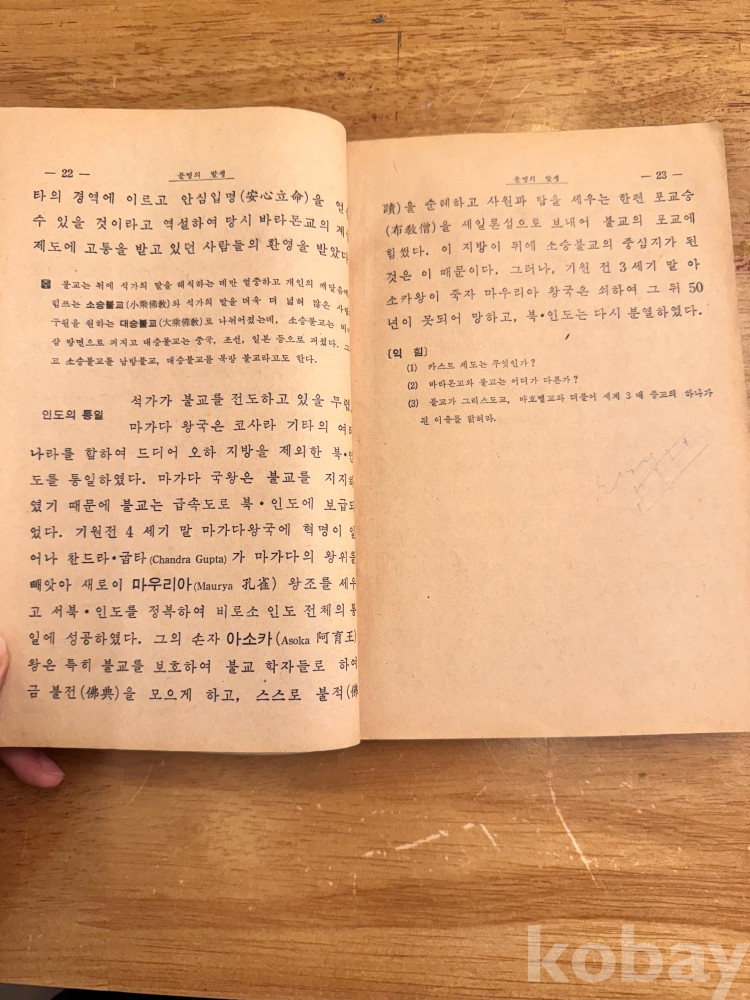 — 22 —
문명의 발생
타의 경역에 이르고 안심입명(安心立命)을 얻
수 있을 것이라고 역설하여 당시 바라몬교의 계
제도에 고통을 받고 있던 사람들의 환영을 받았다
불교는 뒤에 석가의 말을 해석하는 데만 열중하고 개인의 해탈을
힘쓰는 소승불교(小乘佛教)와 석가의 말을 더욱 더 넓혀 많은 사람
구원을 원하는 대승불교(大乘佛教)로 나뉘어졌는데, 소승불교는
샴 방면으로 퍼지고 대승불교는 중국, 조선, 일본 등으로 퍼졌다. 그
고 소승불교를 남방불교, 대승불교를 북방 불교라고도 한다.
인도의 통일
석가가 불교를 전도하고 있을 무렵,
마가다 왕국은 코사라 기타의 여러
나라를 합하여 드디어 오하 지방을 제외한 북·인
도를 통일하였다. 마가다 국왕은 불교를 지지하
였기 때문에 불교는 급속도로 북·인도에 보급되
었다. 기원전 4 세기 말 마가다왕국에 혁명이 일
어나 찬드라·굽타(Chandra Gupta)가 마가다의 왕위를
빼앗아 새로이 마우리아(Maurya 孔雀) 왕조를 세우
고 서북·인도를 정복하여 비로소 인도 전체의 통
일에 성공하였다. 그의 손자 아소카(Asoka 阿育王)
왕은 특히 불교를 보호하여 불교 학자들로 하여
금 불전(佛典)을 모으게 하고, 스스로 불적(佛
문명의 발생
— 23 —
蹟)을 순례하고 사원과 탑을 세우는 한편 포교승
(布敎僧)을 세일론섬으로 보내어 불교의 포교에
힘썼다. 이 지방이 뒤에 소승불교의 중심지가 된
것은 이 때문이다. 그러나, 기원 전 3 세기 말 아
소카왕이 죽자 마우리아 왕국은 쇠하여 그 뒤 50
년이 못되어 망하고, 북·인도는 다시 분열하였다.
[익 힘]
(1) 카스트 제도는 무엇인가?
(2) 바라몬교와 불교는 어디가 다른가?
(3) 불교가 그리스도교, 마호멛교와 더불어 세계 3 대 종교의 하나가
된 이유를 밝혀라.
kobay